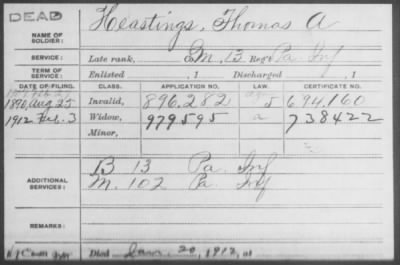 DEAD
NAME OF SOLDIER: Heastings, Thomas A
SERVICE: Late rank, Co. M, 13 Reg't Pa. Inf
TERM OF SERVICE: Enlisted , 1 Discharged , 1
DATE OF FILING. CLASS. APPLICATION NO. LAW. CERTIFICATE NO.
1890, Aug 25 Invalid, 896.282 J 694,160
1912 Feb. 3 Widow, 979595 a 738422
Minor,
ADDITIONAL SERVICES: B 13 Pa. Inf
M. 102 Pa. Inf
REMARKS:
Died Jan. 20, 1912, at